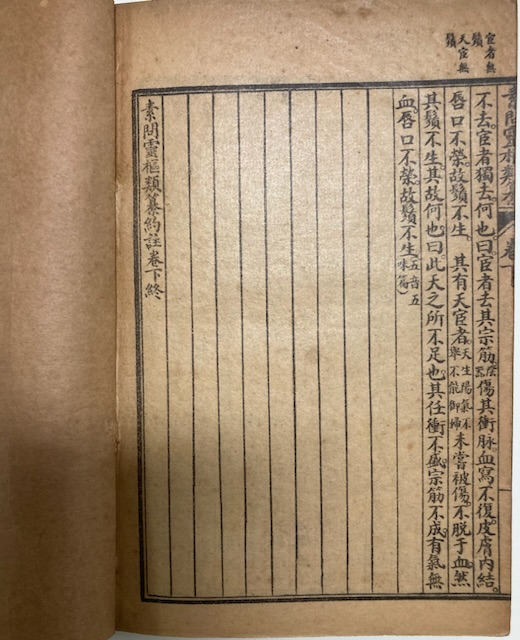 宦者無
鬚
天宦無
鬚
素問靈樞類纂
卷下
不去。宦者獨去何也。曰宦者去其宗筋陰器傷其衝脉血寫不復皮膚內結。
唇口不榮故鬚不生。其有天宦者。天生陽氣不舉不能御婦未嘗被傷。不脫于血。然
其鬚不生。其故何也。曰。此天之所不足也。其任衝不盛。宗筋不成。有氣無
血。唇口不榮。故鬚不生。五音五味篇)
素問靈樞類纂約註卷下終